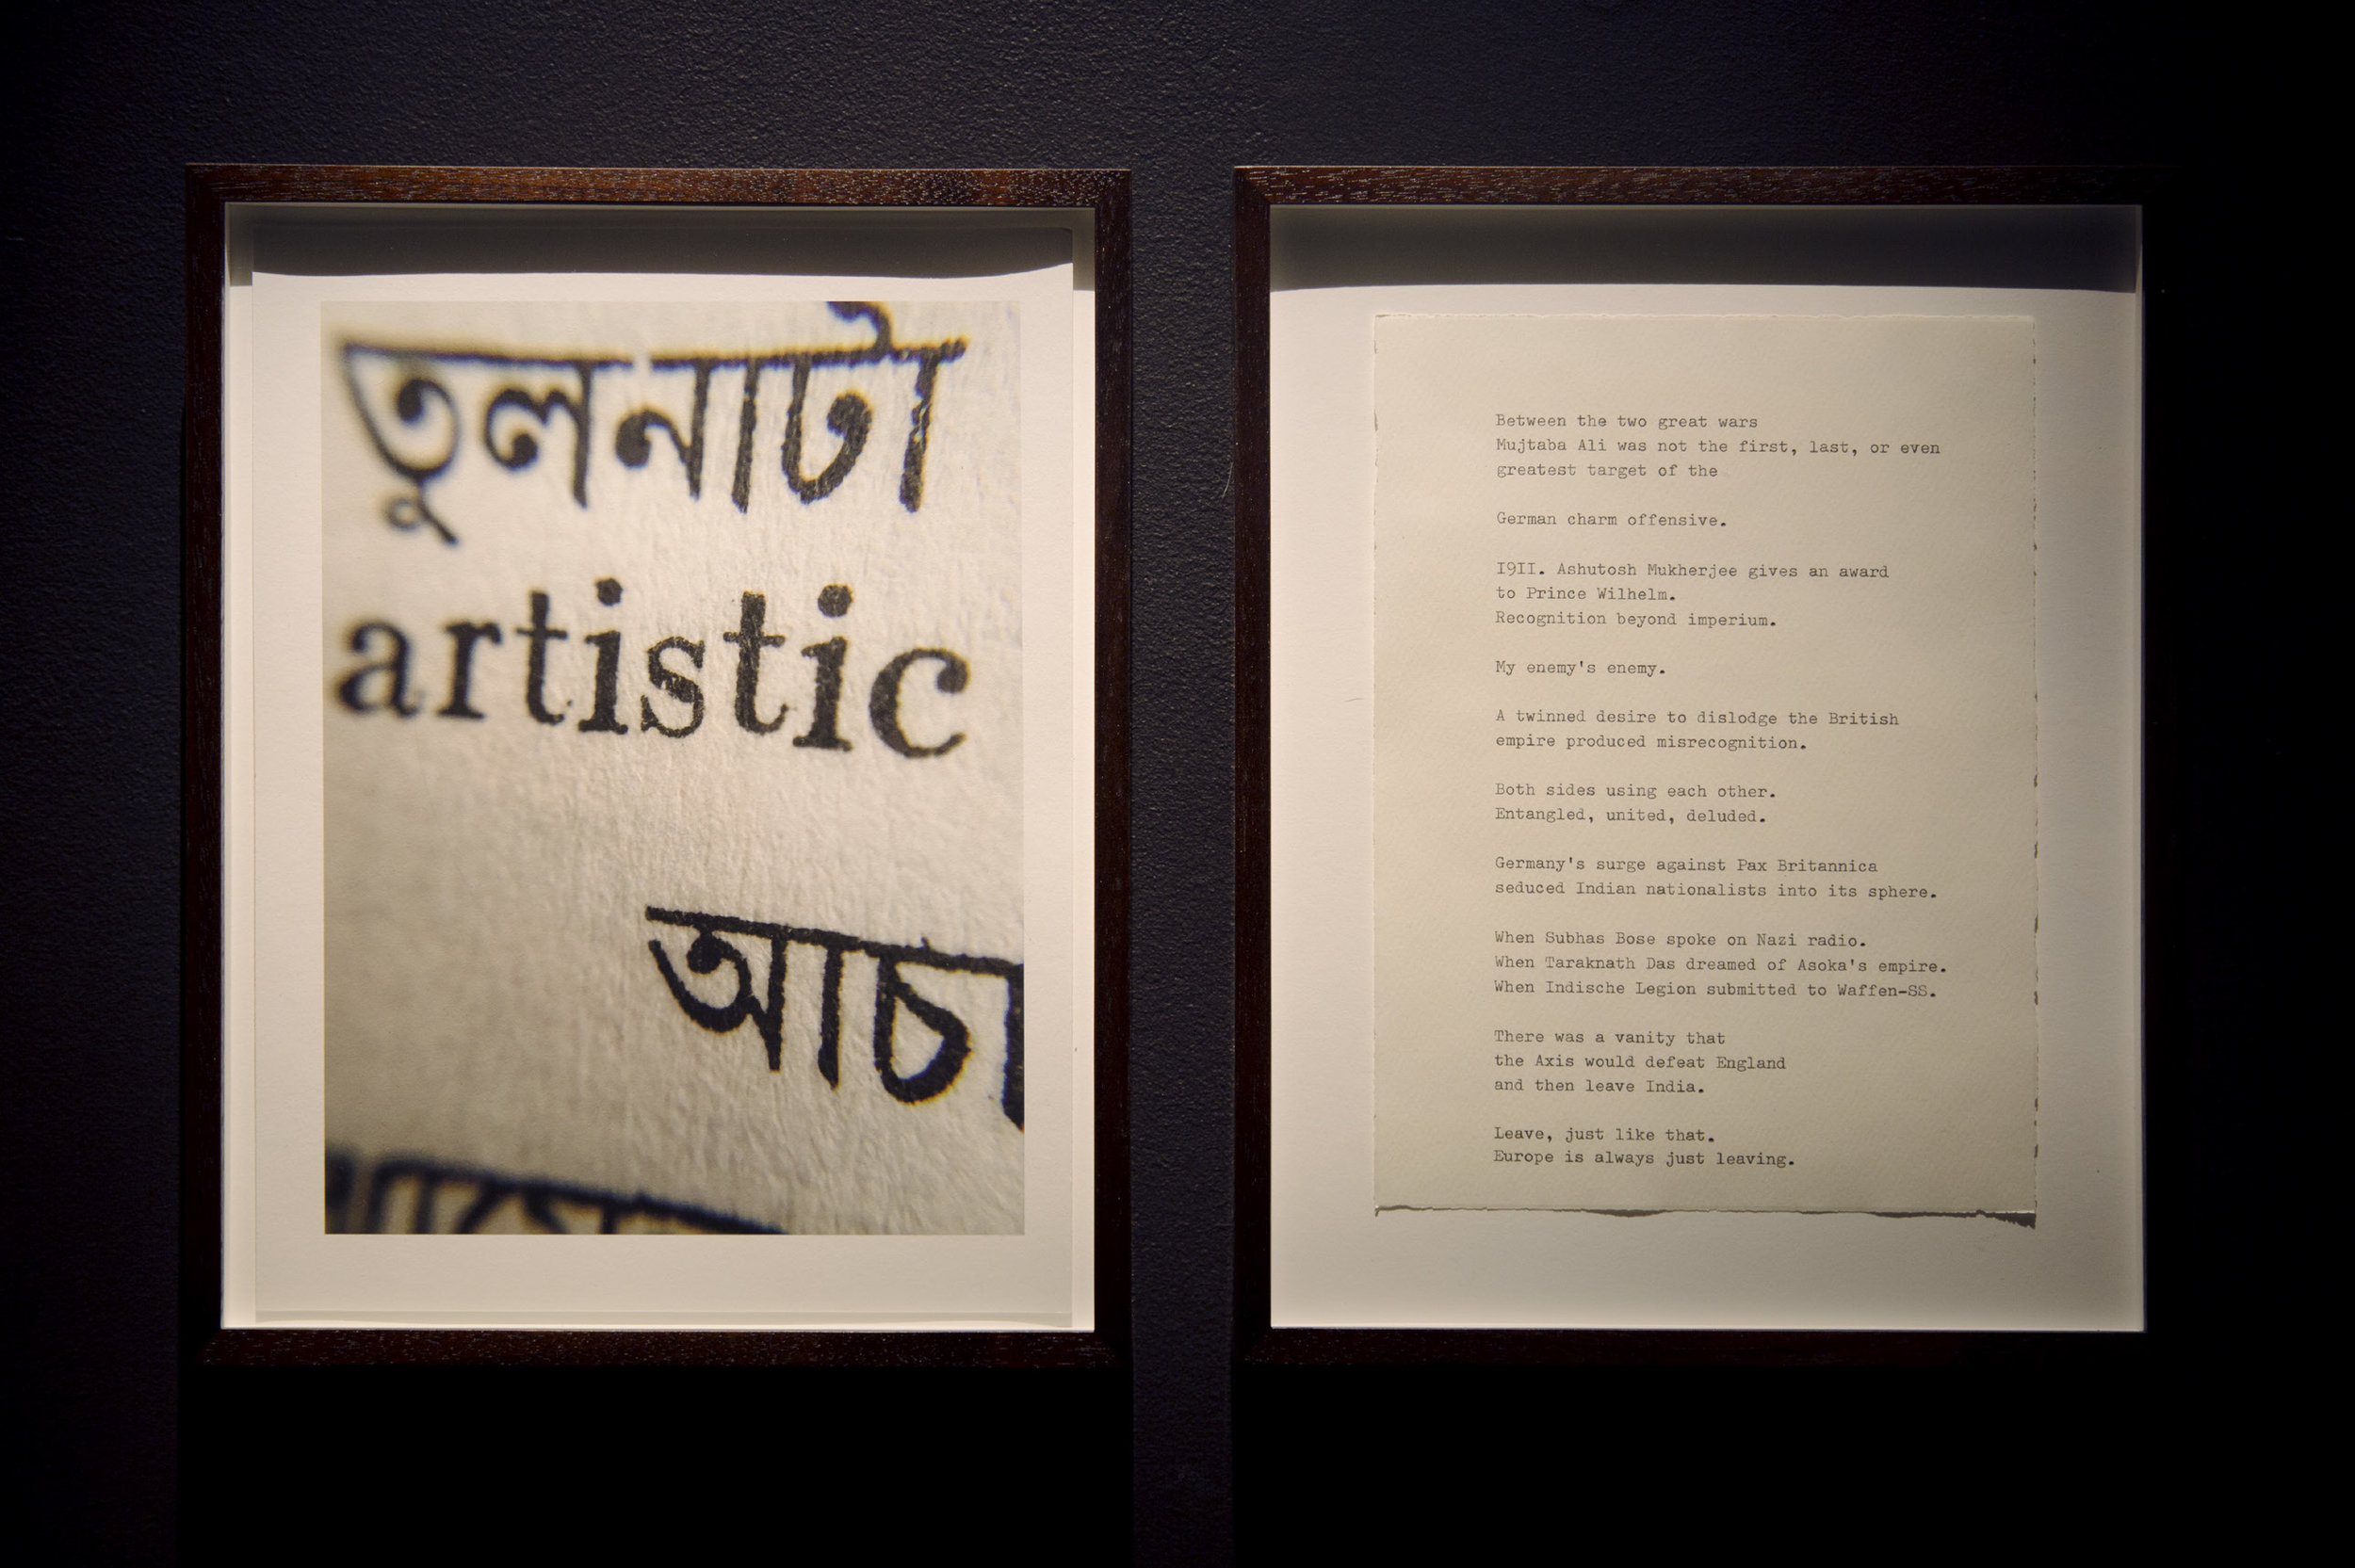 তুলনাটা
artistic
আচা
Between the two great wars
Mujtaba Ali was not the first, last, or even
greatest target of the
German charm offensive.
I9II. Ashutosh Mukherjee gives an award
to Prince Wilhelm.
Recognition beyond imperium.
My enemy's enemy.
A twinned desire to dislodge the British
empire produced misrecognition.
Both sides using each other.
Entangled, united, deluded.
Germany's surge against Pax Britannica
seduced Indian nationalists into its sphere.
When Subhas Bose spoke on Nazi radio.
When Taraknath Das dreamed of Asoka's empire.
When Indische Legion submitted to Waffen-SS.
There was a vanity that
the Axis would defeat England
and then leave India.
Leave, just like that.
Europe is always just leaving.